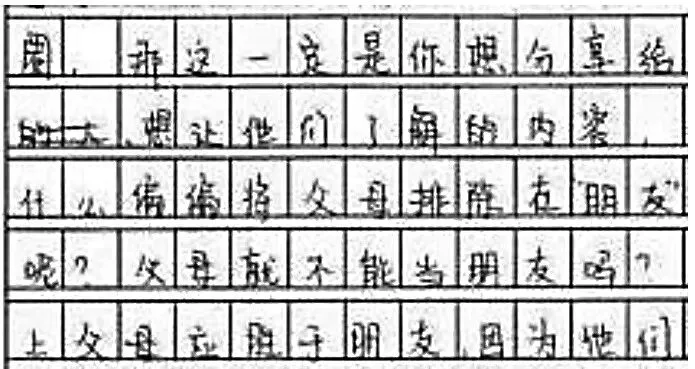 圈，那这一定是你想分享给
，想让他们了解的内容，
什么偏偏将父母排除在“朋友”
呢？父母就不能当朋友吗？
上父母应胜于朋友，因为他们